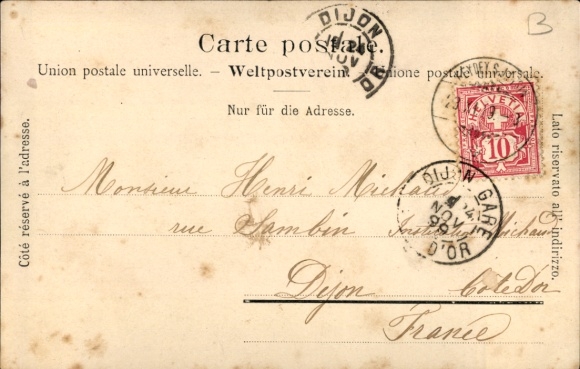 B
DIJON
Carte postale.
Union postale universelle. – Weltpostverein. – Unione postale universale.
Nur für die Adresse.
Côté réservé à l'adresse.
Lato riservato all'indirizzo.
HELVETIA
10
DIJON GARE
NOV
99
D'OR
Monsieur Henri
rue Sambin Institution Michaud
Dijon Côte d'Or
France